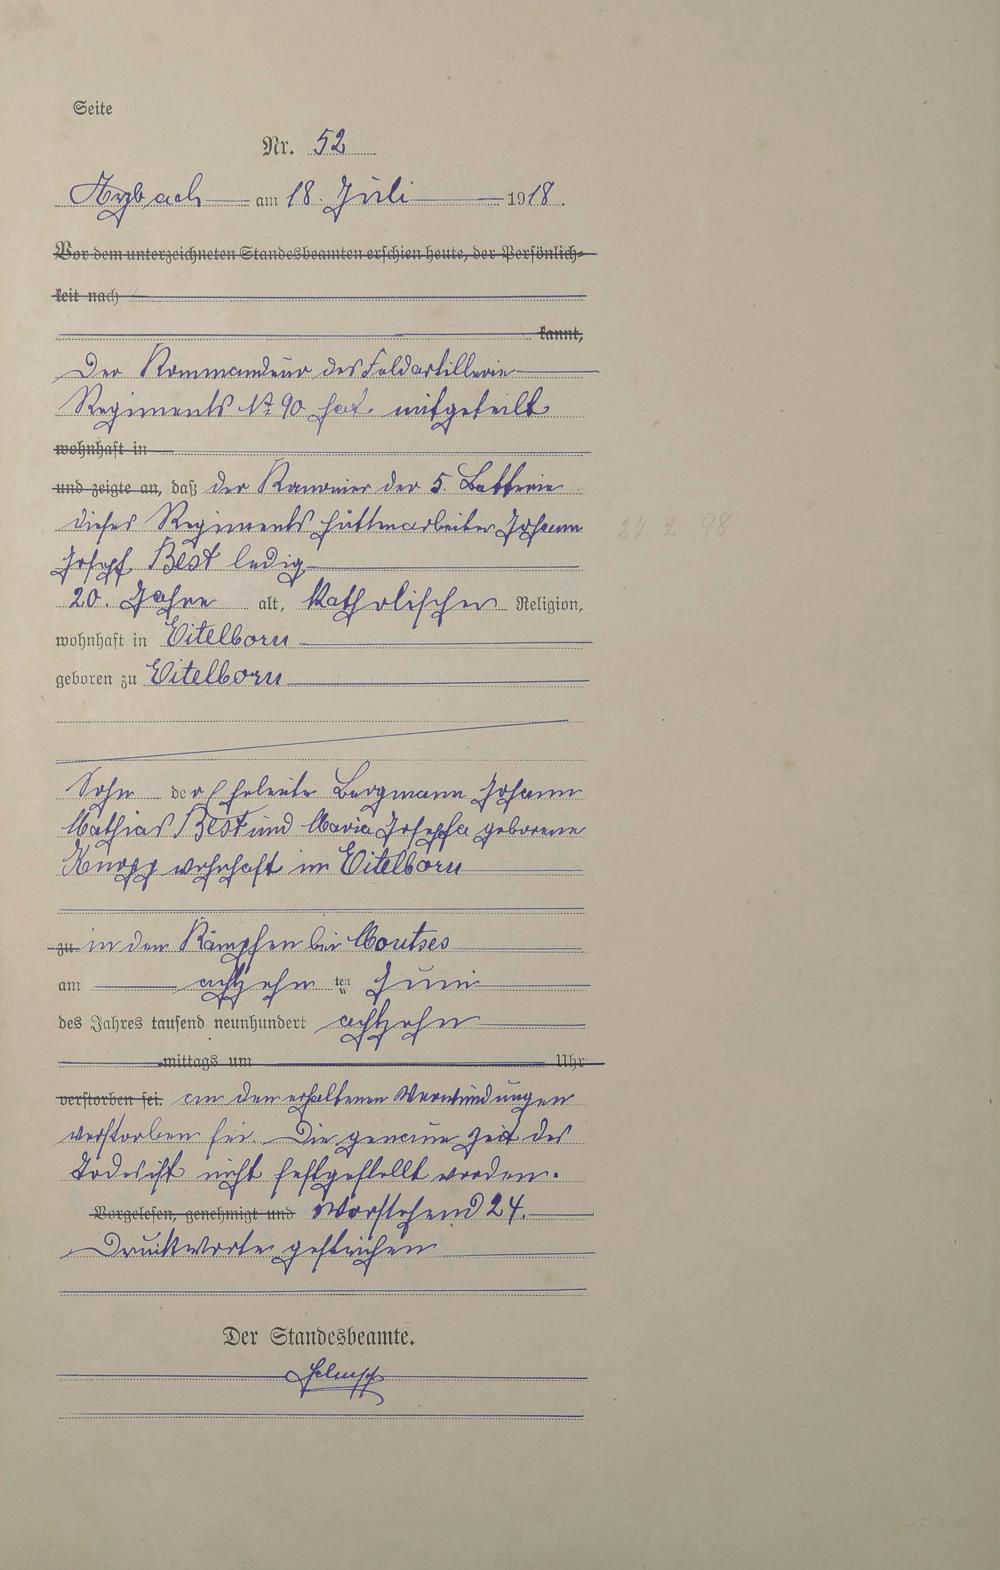 Seite
Nr. 52
Arzbach am 18. Juli 1918.
Vor dem unterzeichneten Standesbeamten erschien heute, der Persönlich-
keit nach
kannt,
Der Kommandeur des Feldartillerie
Regiments No 90 hat mitgeteilt
wohnhaft in
und zeigte an, daß der Kanonier der 5. Batterie
dieses Regiments Hüttenarbeiter Johann
Josepf Best ledig
20. Jahre alt, Katholischer Religion,
wohnhaft in Eitelborn
geboren zu Eitelborn
Sohn der Eheleute Bergmann Johann
Mathias Best und Maria Josepha geborene
Knopp wohnhaft in Eitelborn
zu in den Kämpfen bei
am achtzehn ten Juni
des Jahres tausend neunhundert achtzehn
mittags um Uhr
verstorben sei. an den erhaltenen Verwundungen
verstorben sei. Die genaue Zeit des
Todes ist nicht festgestellt worden.
Vorgelesen, genehmigt und Vorstehend 24.
Druckworte gestrichen
Der Standesbeamte.
27. 2. 98